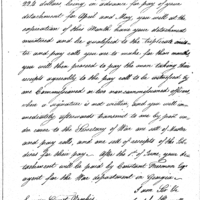 224 dollars being in advance for pay of your
detachment for April and May, you will at the
expiration of this Month have your detachment
mustered and be qualified to the triplicate muster
and pay rolls you are to make for these months
you will then proceed to pay the men taking their
receipts agreeably to the pay roll to be witnessed by
one Commissioned or two non commissioned officers
when a signature is not written, and you will im
mediately afterwards transmit to me by post in
der cover to the Secretary of War one set of Muster
and pay rolls, and one set of receipts of the Sol
diers for their pay. After the 1st of June, your de
tachment will be paid by Constant Freeman Esqr
agent for the War department in Georgia
I am Sir &c